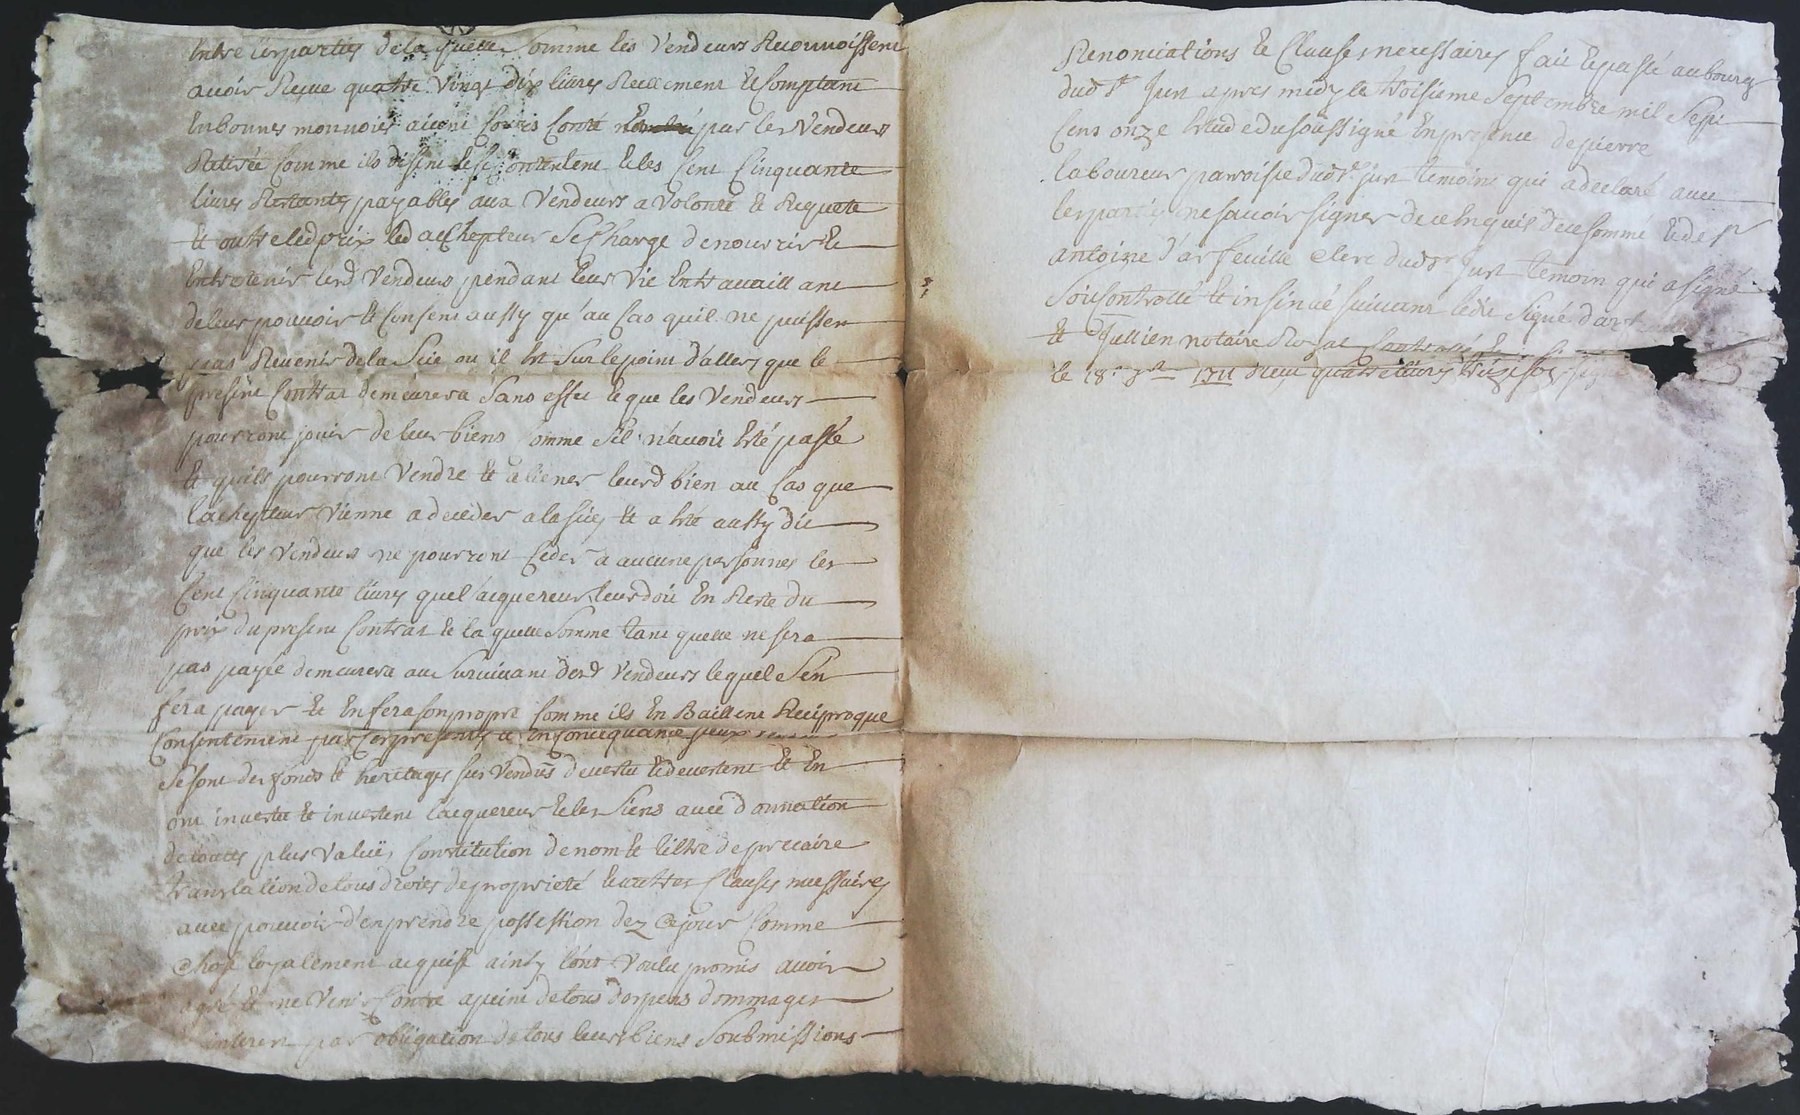 Entre les parties de la quelle somme les Vendeurs Reconnoissent
avoir Reçue quatre Vingt dix livres Reellement et Comptant
En bonnes monnoies aiant Cours Conté par les Vendeurs
Retirée Comme ils disent et se Contentent et les Cent Cinquante
livres Restantes payables aux Vendeurs a Volonté et Requete
et outre led prix led achepteur se Charge de nourrir et
Entretenir lesd Vendeurs pendant leur Vie En travaillant
de leur pouvoir et Consent aussy qu'au Cas quil ne puissent
pas Revenir de la Scie ou il Est sur le point d'aller que le
present Contrat demeurera sans effet et que les Vendeurs
pourront jouir de leur biens Comme s'il n'avoit Eté passé
et quils pourront Vendre et aliener leurd bien au Cas que
lachepteur Vienne a deceder a la sciey et a Eté aussy dit
que les Vendeurs ne pourront Ceder a aucune personnes les
Cent Cinquante livres quel'acquereur leur doit En Reste du
prix du present Contrat et la quelle somme tant quelle ne sera
pas payée demeurera au survivant desd Vendeurs lequel s'en
fera payer et En fera son propre Comme ils En Baillent Reciproque
Consentement par Ces presentes et En Concequance
se sont des fonds et heritages sus Vendus devestu et devestent et En
ont investu et investent lacquereur et les siens avec donnation
de toutes plus Value, Constitution de nom et tiltre de precaire
translation de tous droits de propriété et autres Clauses necessaires
avec pouvoir d'en prendre possession dez Cejour Comme
Chose loyalement acquise ainsy l'ont Voulu promis avoir
agré et ne Venir Contre a peine de tous despens dommages
interest par obligation de tous leurs biens soubmissions
Renonciations et Clauses necessaires fait et passé au bourg
dud St Just apres midy le troisieme Septembre mil Sept
Cens onze Etude du soussigné En presence de pierre
laboureur paroisse dud St just temoins qui a declaré avec
les parties ne savoir signer de ce Enquis de ce sommé et de Sr
antoine d'arfeuille clerc dud St Just temoin qui a signé
soit Controllé et insinué suivant ledit signé
et Jullien notaire Royal Controllé
le 18e 7bre 1711 Reçu quatre livres